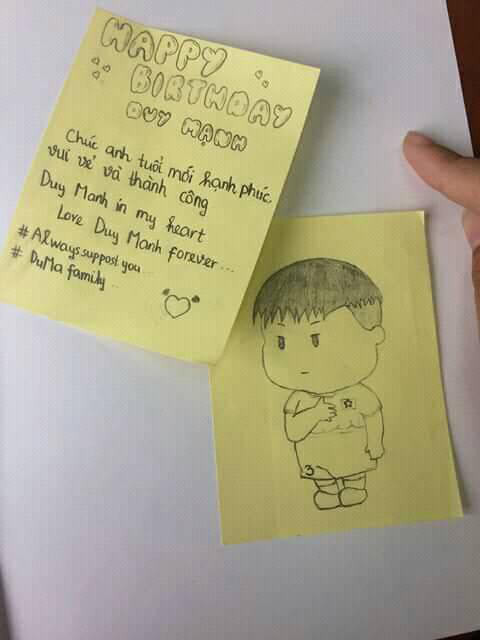 HAPPY
BIRTHDAY
DUY MẠNH
Chúc anh tuổi mới hạnh phúc,
vui vẻ và thành công
Duy Manh in my heart
Love Duy Manh forever...
# Always suppost you...
# DuMa family...
3